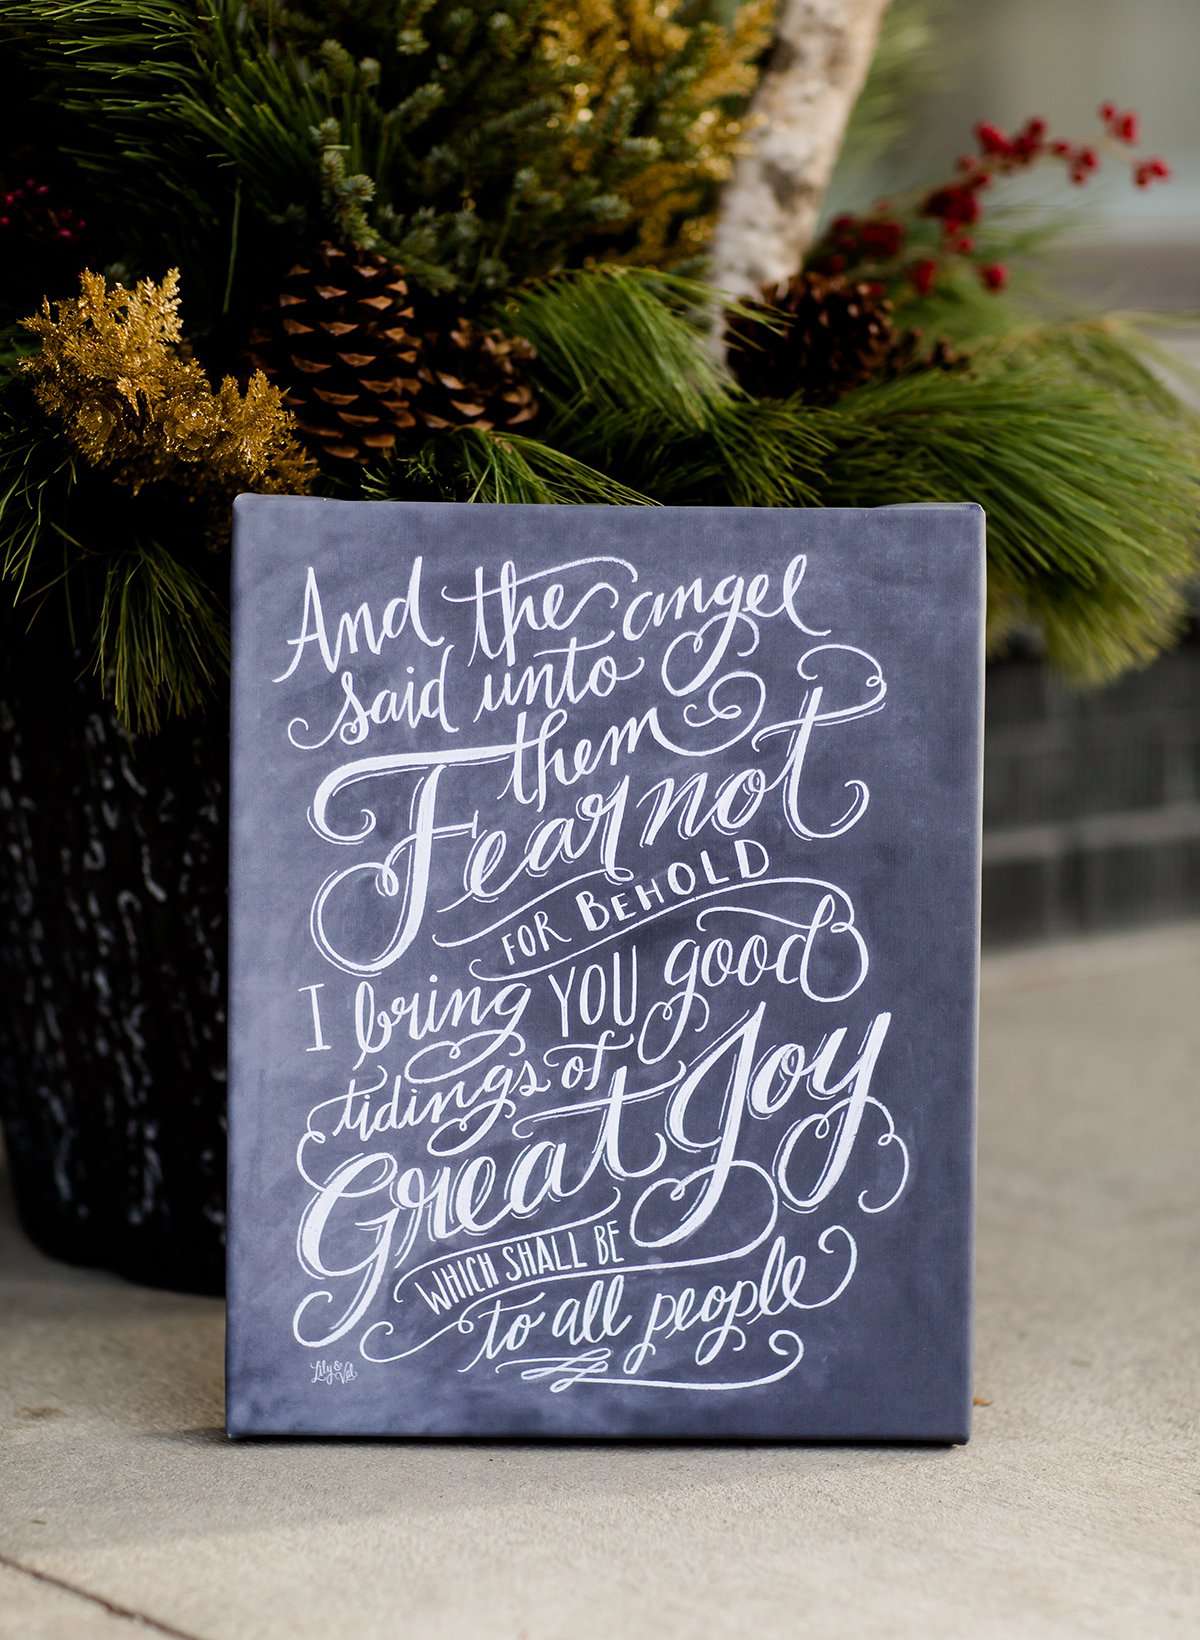 And the angel
said unto
them
Fear not
FOR BEHOLD
I bring YOU good
tidings of
Great Joy
WHICH SHALL BE
to all people
Lily & Val